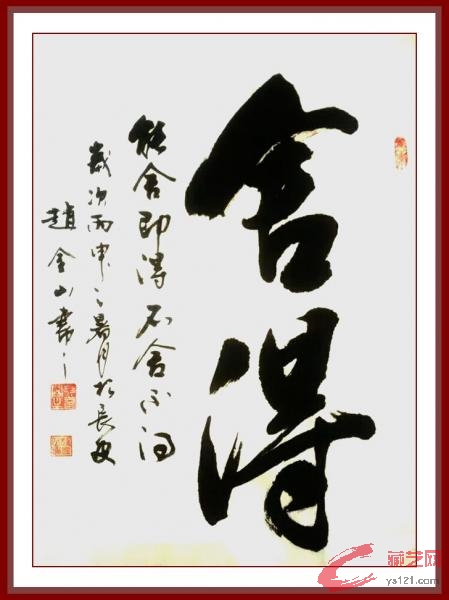 舍得
能舍即得 不舍不得
歲次丙申之暑月於長安
趙金山書
藏艺网
ys121.com